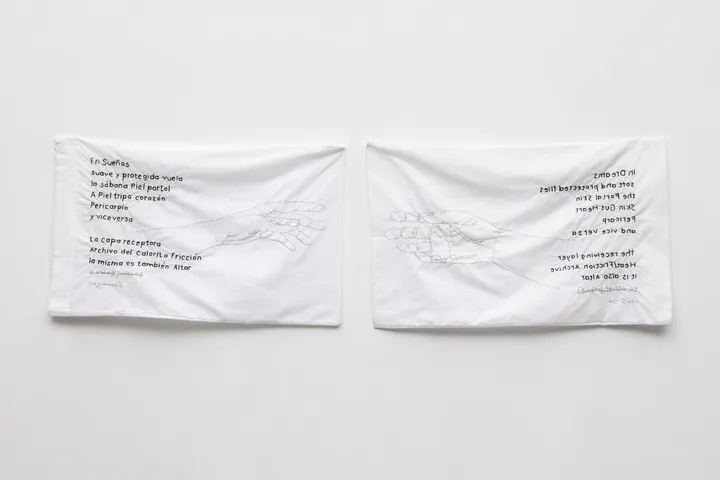 En Sueños
suave y protegida vuela
la sábana Piel portal
A Piel tripa corazón
Pericarpio
y viceversa
La capa receptora
Archivo del Calor/La Fricción
la misma es también Altar
In Dreams
soft and protected flies
the Portal Skin
Skin Gut Heart
Pericarp
and vice versa
the receiving layer
Heat/Friction Archive
it is also altar